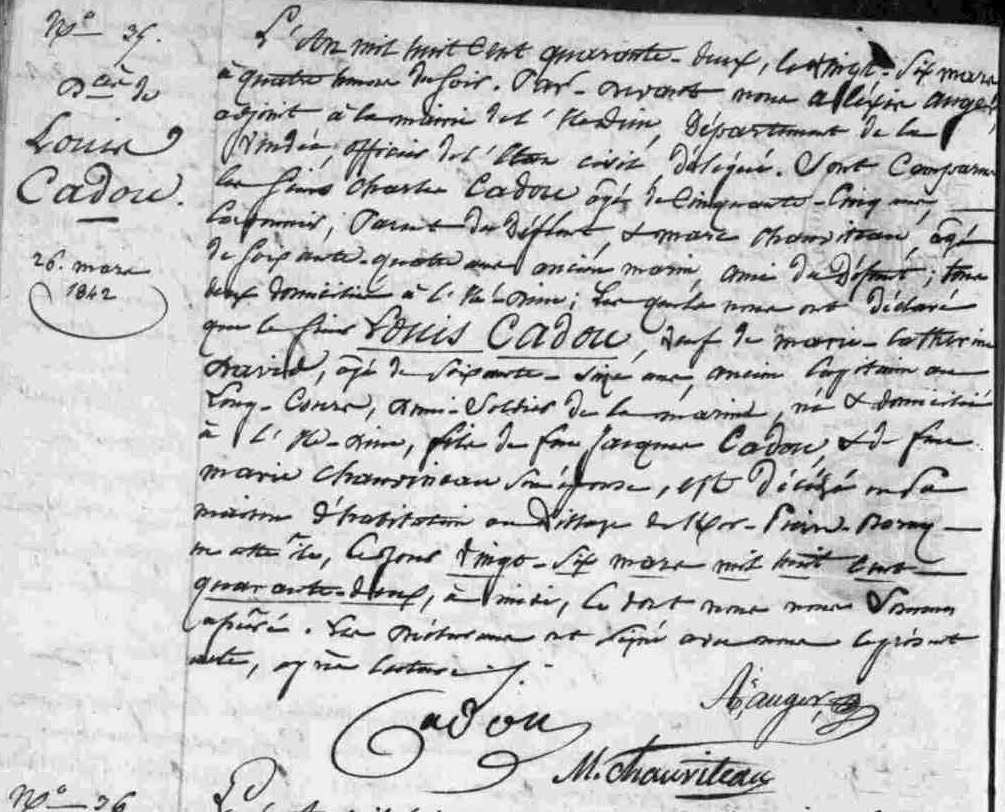 N.º 35.
D.cès de
Louis
Cadou.
26. mars
1842
L'An mil huit cent quarante-deux, le vingt-six mars
à quatre heures du soir. Par-devant nous Alexis Auger,
adjoint à la mairie de l'Ile-Dieu, Département de la
Vendée, officier de l'Etat civil, délégué. Sont comparus
les sieurs Charles Cadou âgé de cinquante-cinq ans,
Parent du Défunt, & marc Chauviteau, âgé
de soixante-quatre ans ancien marin, ami du Défunt; tous
deux domiciliés à l'Ile-Dieu; Lesquels nous ont Déclaré
que le sieur Louis Cadou, veuf de marie-Catherine
David, âgé de soixante-seize ans, ancien Capitaine au
Long-Cours, demi-Soldier de la marine, né & domicilié
à l'Ile-Dieu, fils de feu Jacques Cadou, & de feue
marie Chauvineau son épouse, est Décédé en sa
maison d'habitation au Village de
en cette île, ce jour vingt-six mars mil huit cent
quarante-deux, à midi, ce dont nous nous sommes
assuré. Les déclarans ont signé avec nous le présent
acte, après lecture.
Ax. auger
Cadou
M. Chauviteau
N.º 36